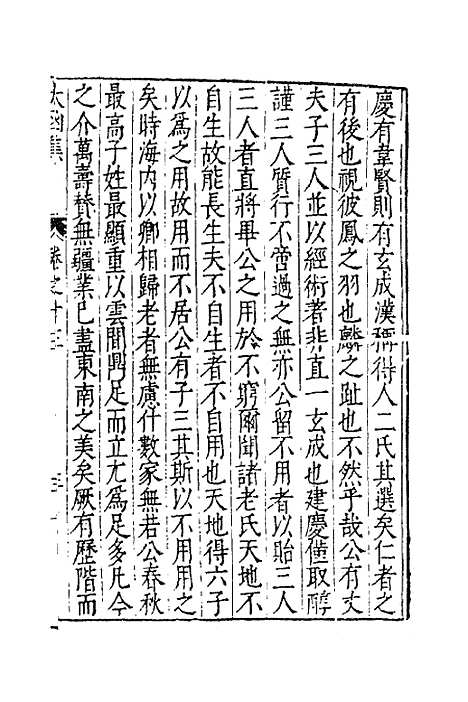 慶有韋賢則有玄成漢稱得人二氏其選矣仁者之
有後也視彼鳳之羽也麟之趾也不然乎哉公有丈
夫子三人並以經術著非直一玄成也建慶僅取醇
謹三人質行不啻過之無亦公留不用者以貽三人
三人者直將畢公之用於不窮爾聞諸老氏天地不
自生故能長生夫不自生者不自用也天地得六子
以爲之用故用而不居公有子三其斯以不用用之
矣時海内以卿相歸老者無慮什數家無若公春秋
最高子姓最顯重以雲間鼎足而立尤爲足多凡今
之介萬壽賛無疆業已盡東南之美矣厥有歷階而
太函集
卷之十三